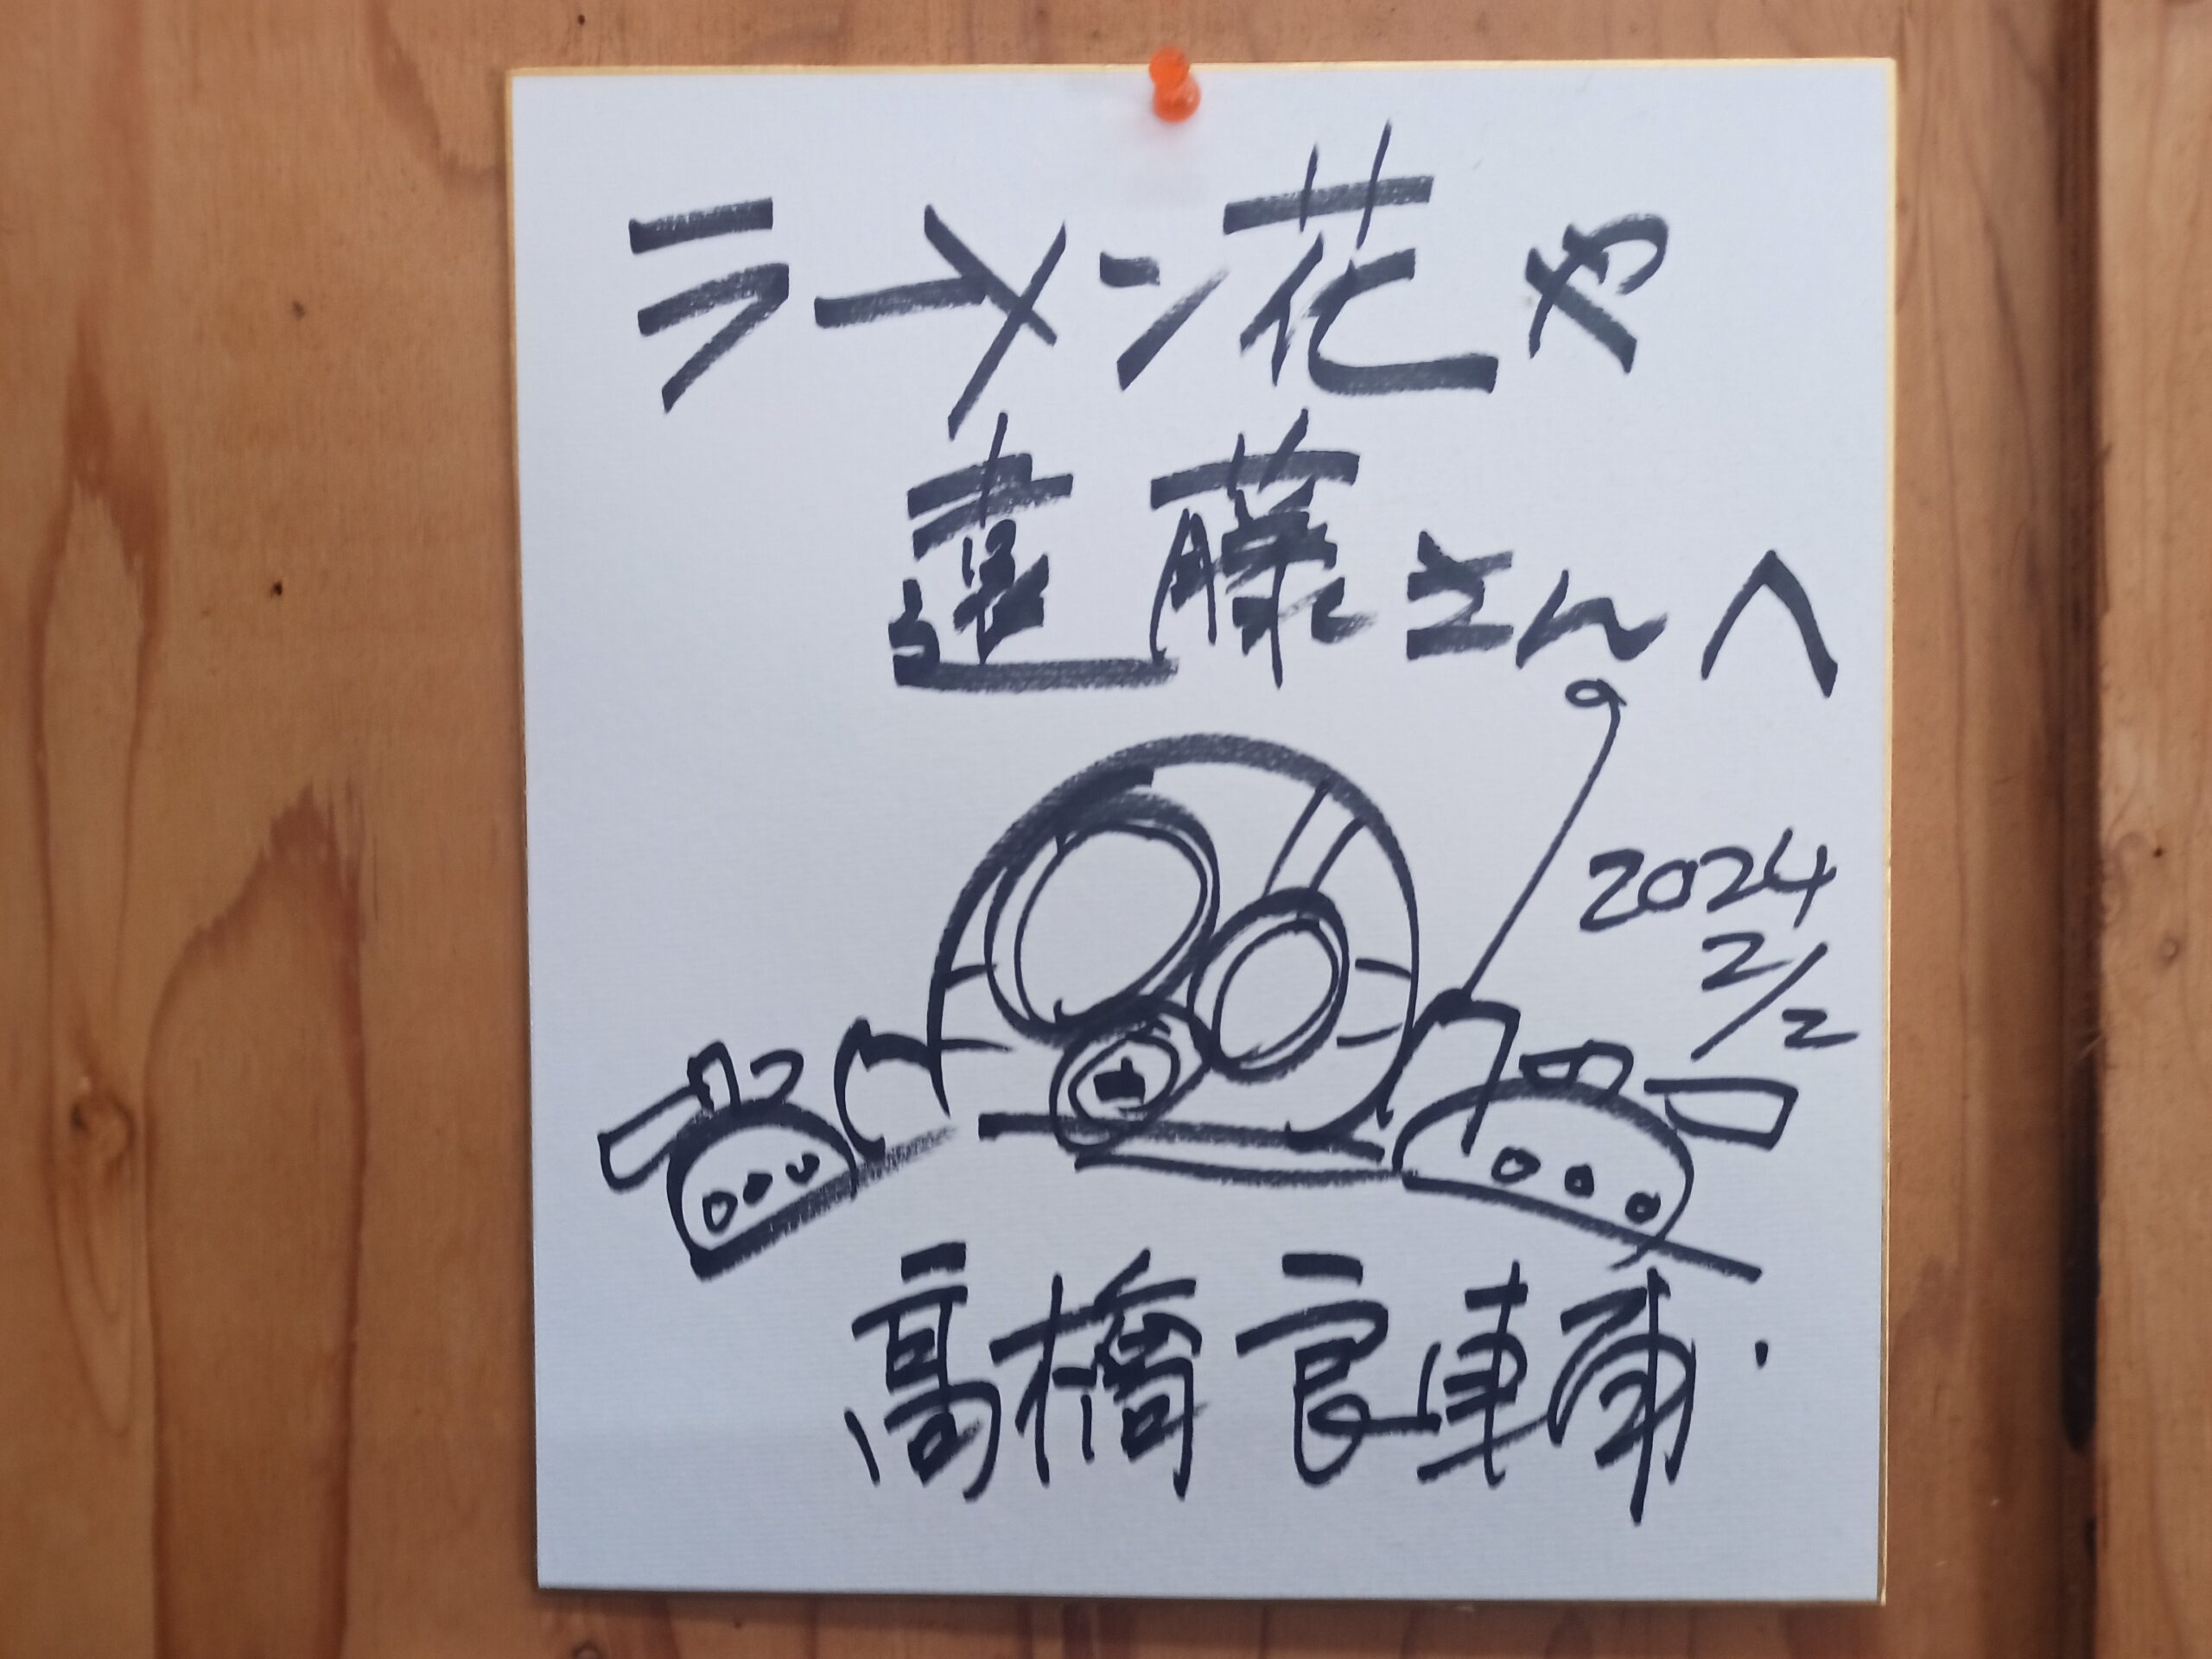 ラーメン花や
遠藤さんへ
2024
2/2
高橋良輔